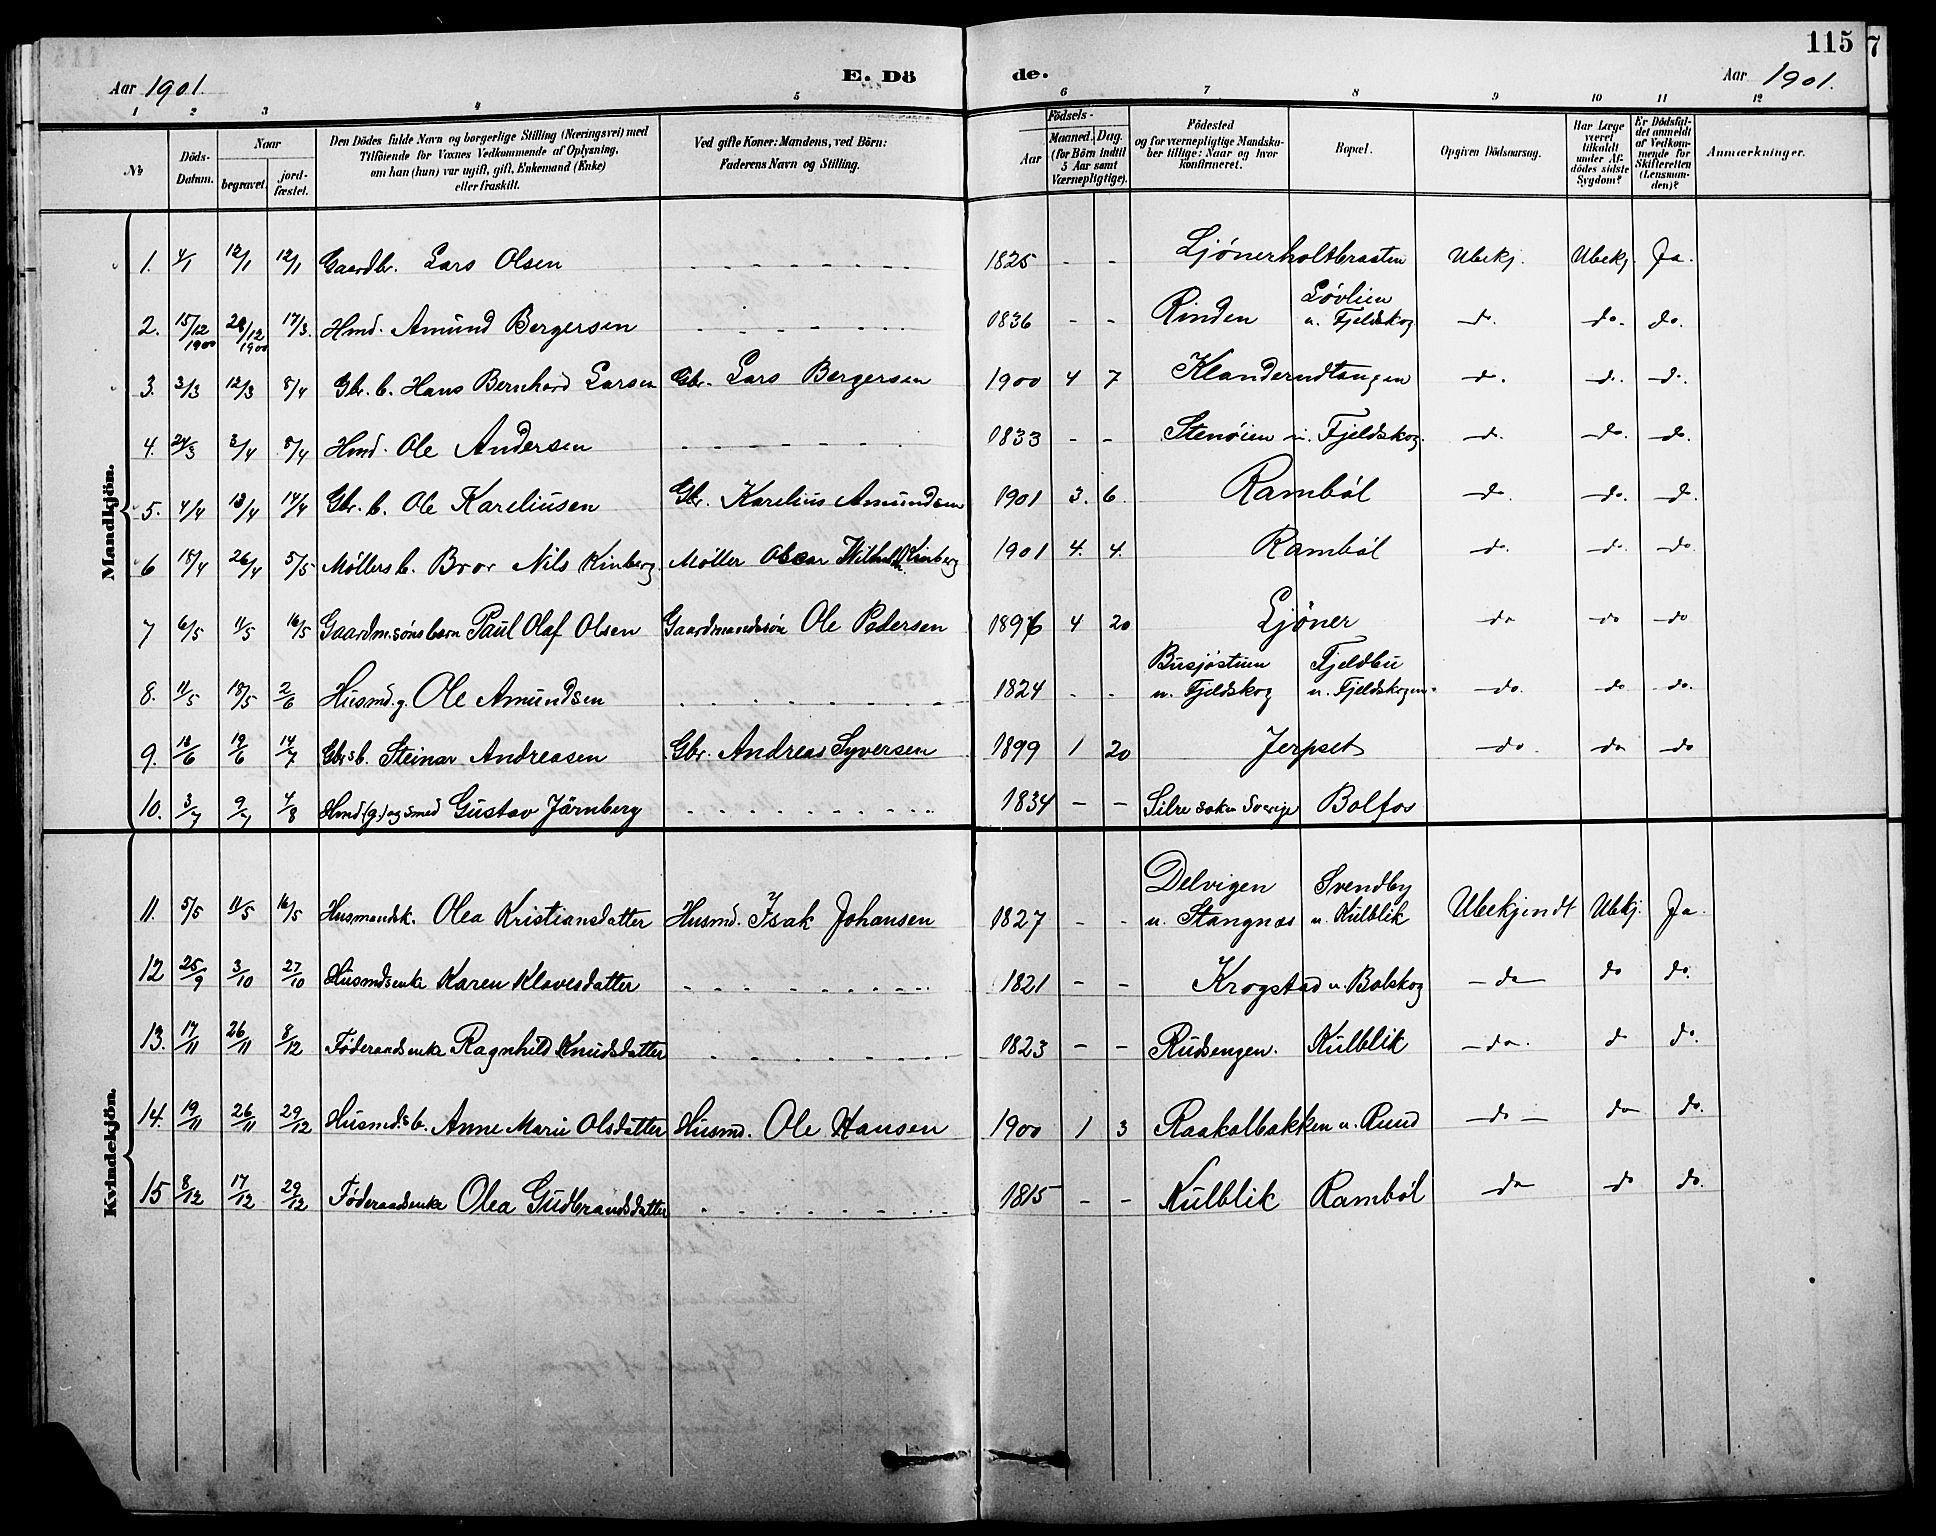 115
7
Aar 1901.
E. Dö
de.
Aar 1901.
1 2 3 4 5 6 7 8 9 10 11 12
№
Döds-Datum.
Naar
begravet.
jord-fæstet.
Den Dödes fulde Navn og borgerlige Stilling (Næringsvei) med
Tilföiende for Voxnes Vedkommende af Oplysning,
om han (hun) var ugift, gift, Enkemand (Enke)
eller fraskilt.
Ved gifte Koner: Mandens, ved Börn:
Faderens Navn og Stilling.
Födsels-
Aar
Maaned. Dag.
(for Börn indtil
5 Aar samt
Værnepligtige).
Födested
og for værnepligtige Mandska-
ber tillige: Naar og hvor
konfirmeret.
Bopæl.
Opgiven Dödsaarsag.
Har Læge
været
tilkaldt
under Af-
dödes sidste
Sygdom?
Er Dödsfal-
det anmeldt
af Vedkom-
mende for
Skifteretten
(Lensman-
den)?
Anmærkninger.
Mandkjön.
1. 4/1 12/1 12/1 Gaardbr. Lars Olsen 1825 - - Ljönerholtbraaten Ubekj. Ubekj. Ja.
2. 15/12 1900 28/12 1900 17/3. Hmd. Amund Bergersen 1836 - - Rinden Løvlien u. Fjeldskog do. do. do.
3. 3/3 12/3 8/4 Gbr. b. Hans Bernhard Larsen Gbr. Lars Bergersen 1900 4 7 Klanderudtangen do. do. do.
4. 24/3 3/4 8/4 Hmd. Ole Andersen 1833 - - Stenöien u. Fjeldskog. do. do. do.
5. 4/4 13/4 14/4 Gbr. b. Ole Kareliusen Gbr. Karelius Amundsen 1901 3. 6. Rambøl do. do. do.
6 18/4 26/4 5/5 Møllers b. Bror Nils Kinberg Møller Oscar Wilhelm Kinberg 1901 4. 4. Rambøl do. do. do.
7 6/5 11/5 16/5 Gaardm.sønsbarn Paul Olaf Olsen Gaardmandssön Ole Pedersen 1896 4 20 Ljöner do do do
8. 11/5 18/5 2/6 Husmd. g. Ole Amundsen 1824 - - Busjøstuen u. Fjeldskog Fjeldbu u. Fjeldskogen. do. do do.
9. 18/6 19/6 14/7 Gbrsb. Steinar Andreasen Gbr. Andreas Syversen 1899 1 20 Jerpset do. do do
10. 3/7 9/7 4/8 Hmd (g.) og smed Gustav Järnberg 1834 - - Silre sokn Sverige Bolfos
Kvindekjön.
11. 5/5 11/5 16/5 Husmandsk. Olea Kristiansdatter Husmd. Isak Johansen 1827 - - Delvigen u. Stangnæs Svendby u. Kulblik Ubekjendt Ubkj. Ja.
12 25/9 3/10 27/10 Husmdsenke Karen Klavesdatter 1821 - - Krogstad u. Bolskog do do do.
13. 17/11 26/11 8/12 Føderaadsenke Ragnhild Knudsdatter 1823 - - Rudsengen. Kulblik do. do do.
14. 19/11 26/11 29/12 Husmds b. Anne Marie Olsdatter Husmd. Ole Hansen 1900 1 3 Raakalbakken u. Ruud do do do.
15 8/12 17/12 29/12 Føderaadsenke Olea Gudbrandsdatter 1815 - - Kulblik Rambøl do do do.